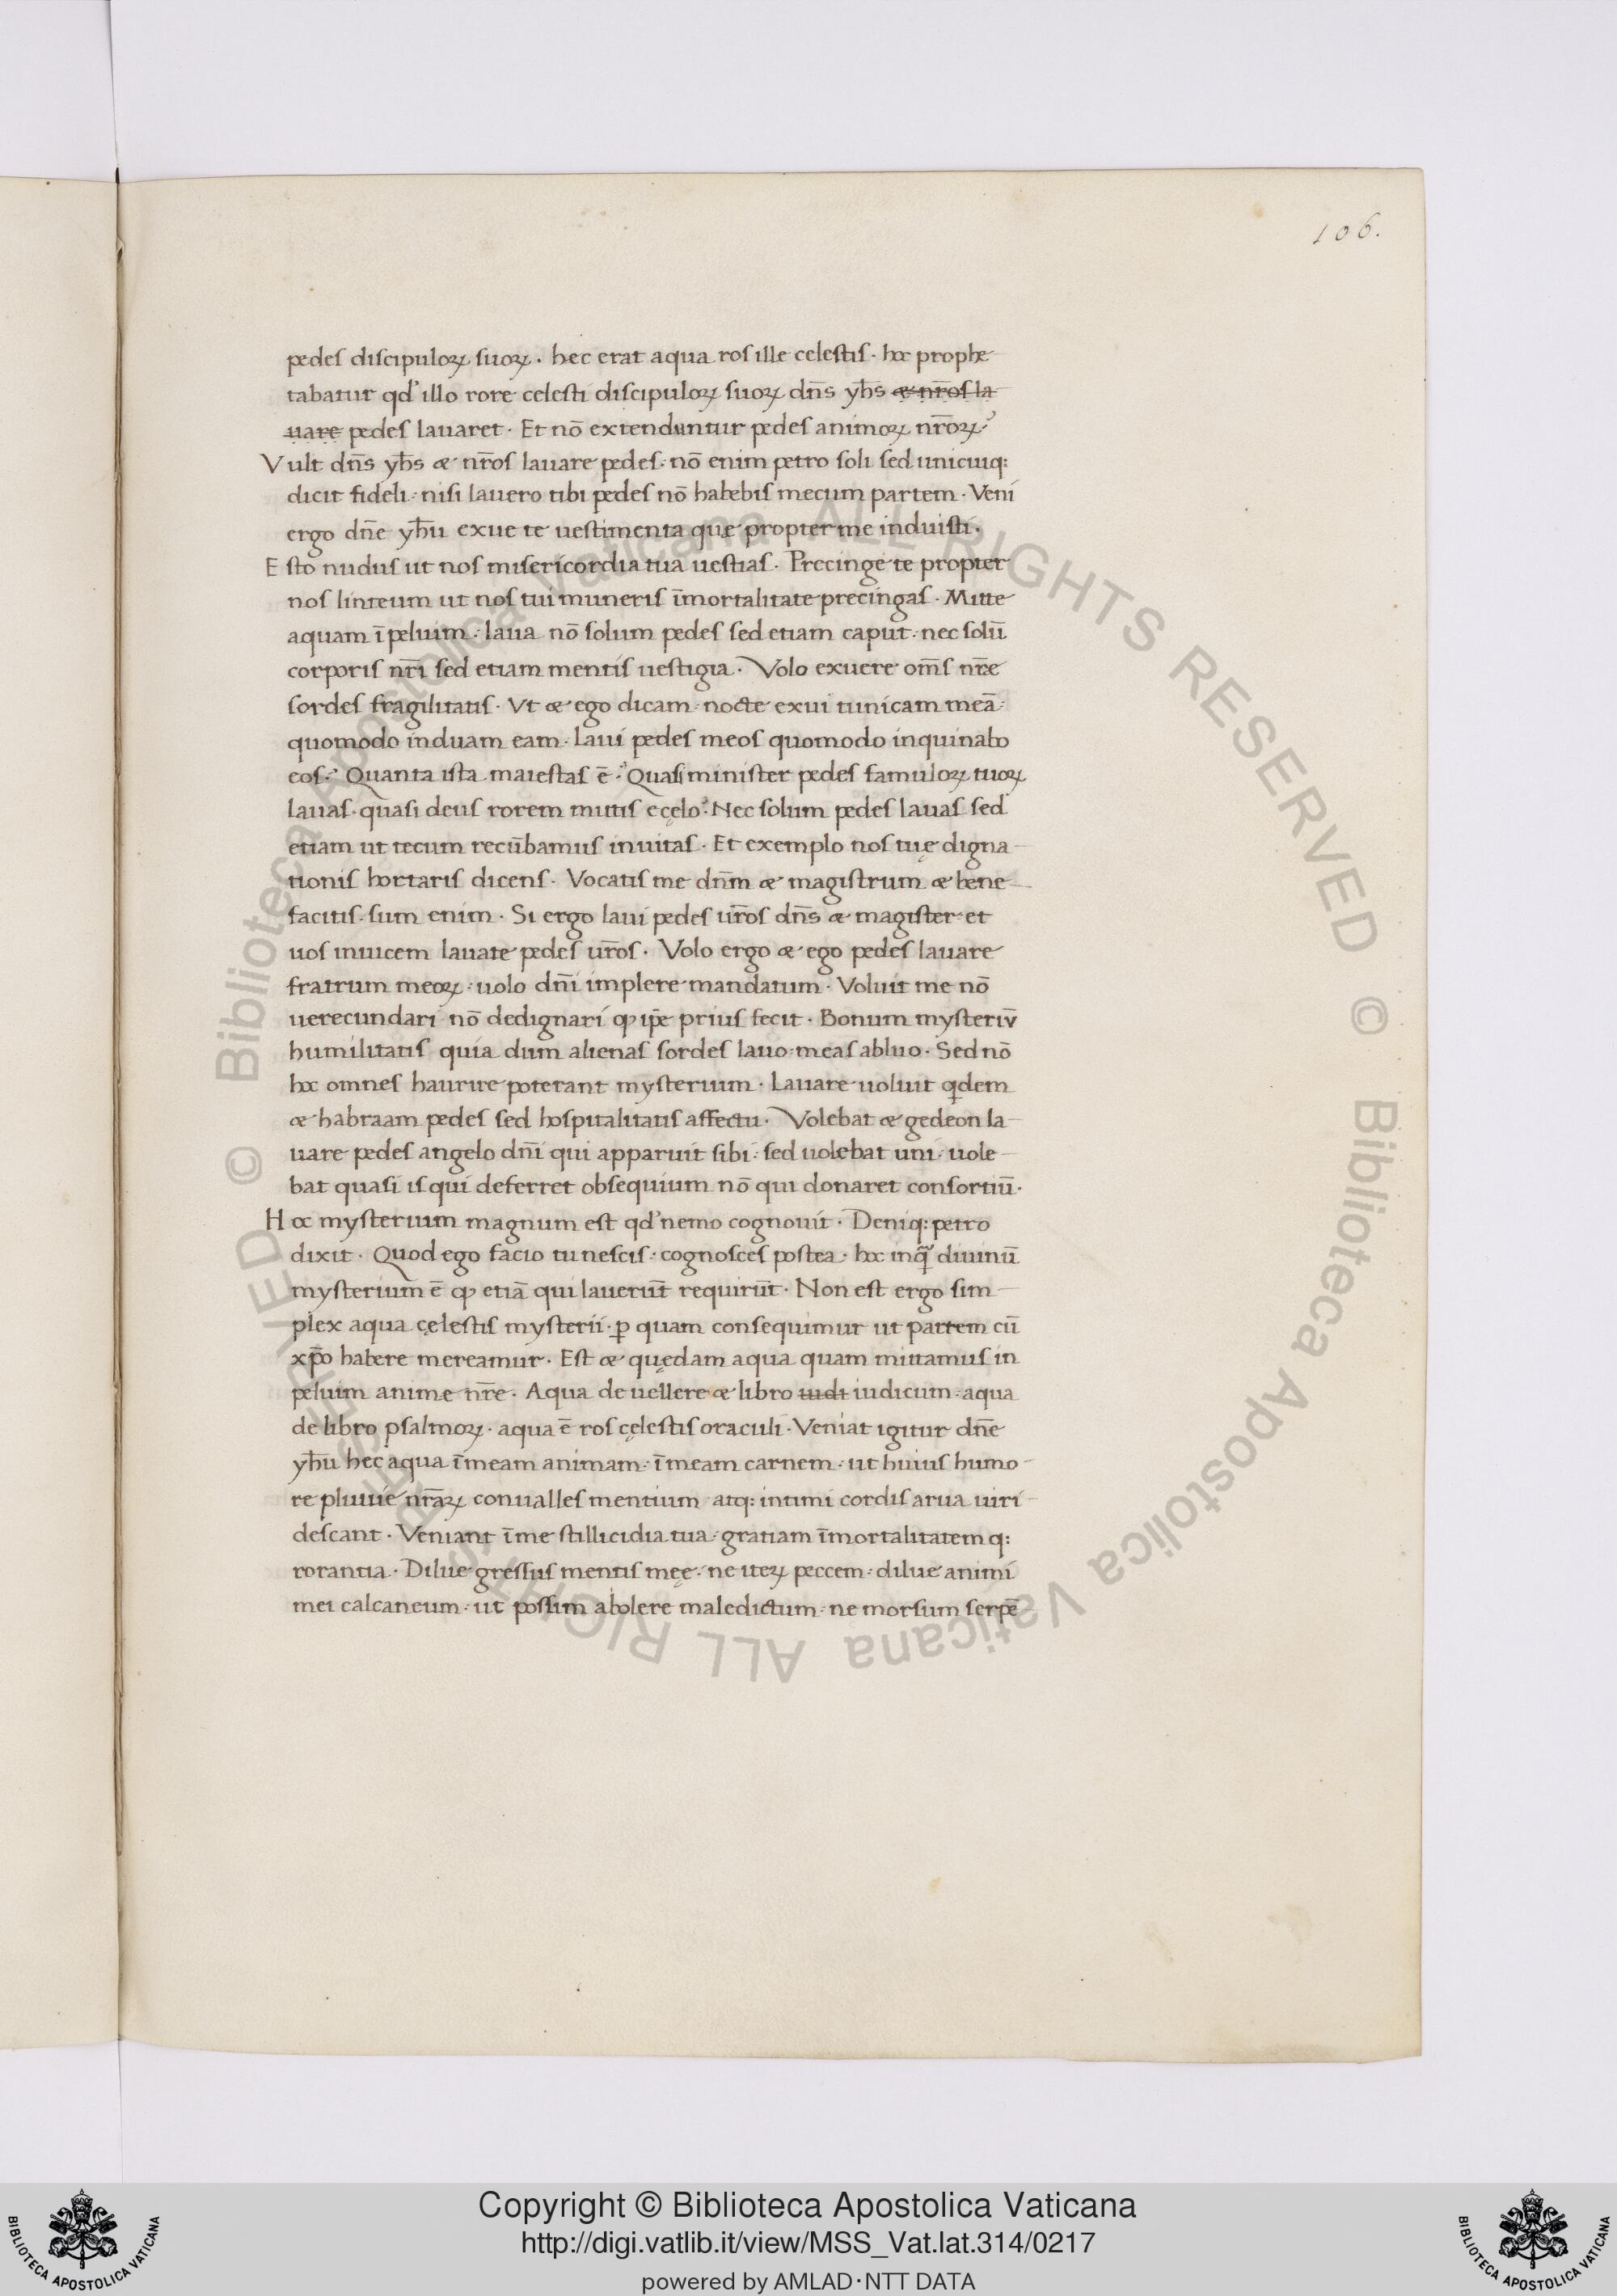 106.
pedes discipuloꝝ suoꝝ · hec erat aqua ros ille celestis · hoc prophe
tabatur qd' illo rore celesti discipuloꝝ suoꝝ dn̄s yh̄s & nr̄os la
uare pedes lauaret · Et nō extenduntur pedes animoꝝ nr̄oꝝ?
Vult dn̄s yh̄s & nr̄os lauare pedes · nō enim petro soli sed unicuiq:
dicit fideli · nisi lauero tibi pedes nō habebis mecum partem · Veni
ergo dn̄e yh̄u exue te uestimenta quę propter me induisti ·
Esto nudus ut nos misericordia tua uestias · Precinge te propter
nos linteum ut nos tui muneris īmortalitate precingas · Mitte
aquam ī peluim · laua nō solum pedes sed etiam caput · nec solū
corporis nr̄i sed etiam mentis uestigia · Volo exuere om̄s nr̄e
sordes fragilitatis · Vt & ego dicam · nocte exui tunicam meā ·
quomodo induam eam · laui pedes meos quomodo inquinabo
eos? Quanta ista maiestas ē? Quasi minister pedes famuloꝝ tuoꝝ
lauas · quasi deus rorem mittis e cęlo? Nec solum pedes lauas sed
etiam ut tecum recūbamus inuitas · Et exemplo nos tuę digna
tionis hortaris dicens · Vocatis me dn̄m & magistrum & bene
facitis · sum enim · Si ergo laui pedes ur̄os dn̄s & magister · et
uos inuicem lauate pedes ur̄os · Volo ergo & ego pedes lauare
fratrum meoꝝ · uolo dn̄i implere mandatum · Voluit me nō
uerecundari nō dedignari ꝙ ip̄e prius fecit · Bonum mysteriū
humilitatis quia dum alienas sordes lauo meas abluo · Sed nō
hoc omnes haurire poterant mysterium · Lauare uoluit qdem
& habraam pedes sed hospitalitatis affectu · Volebat & gedeon la
uare pedes angelo dn̄i qui apparuit sibi · sed uolebat uni · uole
bat quasi is qui deferret obsequium nō qui donaret consortiū ·
Hoc mysterium magnum est qd' nemo cognouit · Deniq: petro
dixit · Quod ego facio tu nescis · cognosces postea · hoc inq̄ diuinū
mysterium ē ꝙ etiā qui lauerūt requirūt · Non est ergo sim
plex aqua cęlestis mysterii · ꝑ quam consequimur ut partem cū
xp̄o habere mereamur · Est & quędam aqua quam mittamus in
peluim anime nr̄e · Aqua de uellere & libro iudi iudicum · aqua
de libro psalmoꝝ · aqua ē ros cęlestis oraculi · Veniat igitur dn̄e
yh̄u hec aqua ī meam animam · ī meam carnem · ut huius humo
re pluuie nr̄aꝝ conualles mentium atq: intimi cordis arua uiri
descant · Veniant ī me stillicidia tua · gratiam īmortalitatem q:
rorantia · Dilue gressus mentis meę · ne iteꝝ peccem · dilue animi
mei calcaneum · ut possim abolere maledictum · ne morsum serpē
© Biblioteca Apostolica Vaticana ALL RIGHTS RESERVED © Biblioteca Apostolica Vaticana ALL RIGHTS RESERVED
Copyright © Biblioteca Apostolica Vaticana
http://digi.vatlib.it/view/MSS_Vat.lat.314/0217
powered by AMLAD·NTT DATA
BIBLIOTECA APOSTOLICA VATICANA
BIBLIOTECA APOSTOLICA VATICANA